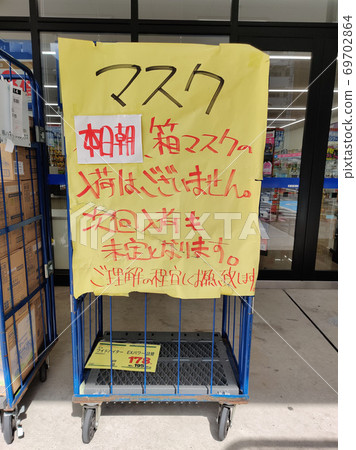 マスク
本日朝、箱マスクの
入荷は、ございません。
次回入荷も
未定となります。
ご理解の程宜しくお願い致します
178
PIXTA
69702864